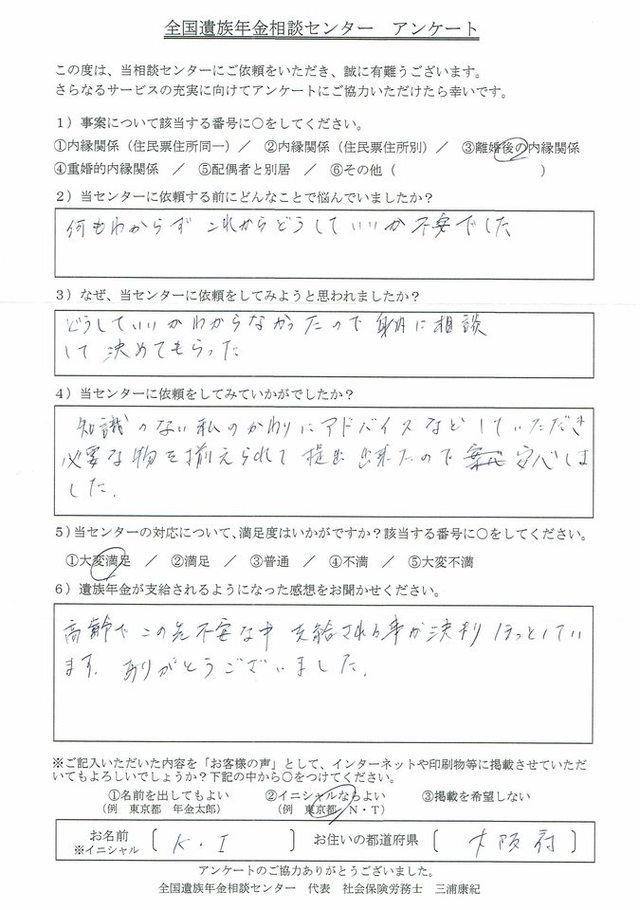 全国遺族年金相談センター　アンケート
この度は、当相談センターにご依頼をいただき、誠に有難うございます。
さらなるサービスの充実に向けてアンケートにご協力いただけたら幸いです。
1）事案について該当する番号に○をしてください。
①内縁関係（住民票住所同一）／　②内縁関係（住民票住所別）／　③離婚後の内縁関係
④重婚的内縁関係　／　⑤配偶者と別居　／　⑥その他（　　　　　　　　　　　）
2）当センターに依頼する前にどんなことで悩んでいましたか？
何もわからず これからどうしていいか 不安でした
3）なぜ、当センターに依頼をしてみようと思われましたか？
どうしていいかわからなかったので 身内に相談
して 決めてもらった
4）当センターに依頼をしてみていかがでしたか？
知識のない私のかわりにアドバイスなどしていただき
必要な物を揃えられて 提出 出来たので 安心しま
した.
5）当センターの対応について、満足度はいかがですか？該当する番号に○をしてください。
①大変満足　／　②満足　／　③普通　／　④不満　／　⑤大変不満
6）遺族年金が支給されるようになった感想をお聞かせください。
高齢で この先不安な中 支給される事が決まり ほっとしてい
ます. ありがとうございました.
※ご記入いただいた内容を「お客様の声」として、インターネットや印刷物等に掲載させていただ
いてもよろしいでしょうか？下記の中から○をつけてください。
①名前を出してもよい　　②イニシャルならよい　　③掲載を希望しない
（例　東京都　年金太郎）　　（例　東京都　N・T）
お名前
※イニシャル　〔　K・I　〕　お住いの都道府県　〔　大阪府　〕
アンケートのご協力ありがとうございました。
全国遺族年金相談センター　代表　社会保険労務士　三浦康紀